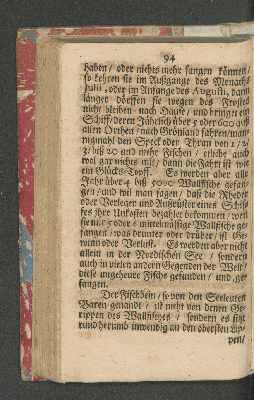 94
haben / oder nichts mehr fangen können /
so kehren sie im Außgange des Monachs
Julii, oder im Anfange des Augusti, dann
länger dörffen sie wegen des Frostes
nicht bleiben nach Hause / und bringet ein
Schiff / deren Jährlich über 5 oder 600 auß
allen Orthen / nach Grönland fahren / man-
nigmahl den Speck oder Thran von 1 / 2 /
3 / biß 20 und mehr Fischen / etliche auch
wol gar nichts mit / dann die Fahrt ist wie
ein Glücks-Topff. Es werden aber alle
Jahr über 4 biß 5000 Wallfische gefan-
gen / und wil man sagen / daß die Rheder
oder Verleger und Außrüster eines Schif-
fes ihre Unkosten bezahlet bekommen / wen
sie nur 5 oder 6 mittelmässige Wallfische ge-
fangen / was drunter oder drüber / ist Ge-
winn oder Verlust. Es werden aber nicht
allein in der Nordischen See / sondern
auch in vielen andern Gegenden der Welt /
diese ungeheure Fische gefunden / und ge-
fangen.
Der Fischbein / so von den Seeleuten
Baren genandt / ist nicht von denen Ge-
rippen des Wallfisches / sondern es sitzt
rund herumb inwendig an den obersten Lip-
pen /